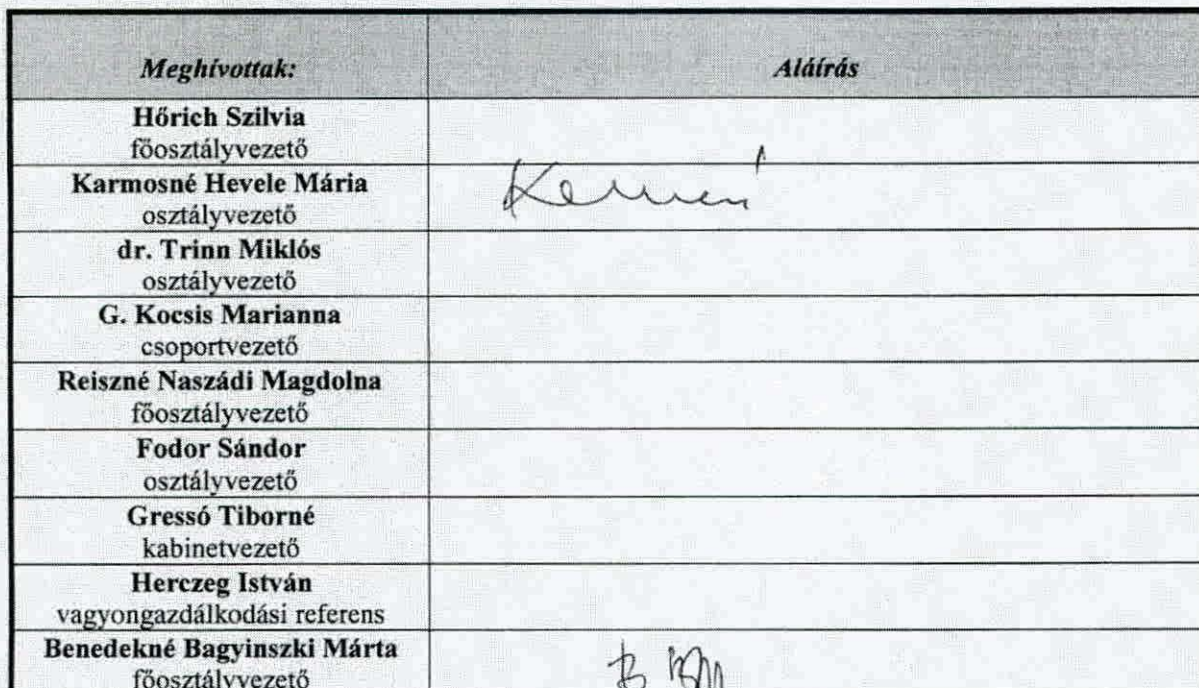 Meghívottak: Aláírás
Hőrich Szilvia
főosztályvezető
Karmosné Hevele Mária
osztályvezető
dr. Trinn Miklós
osztályvezető
G. Kocsis Marianna
csoportvezető
Reiszné Naszádi Magdolna
főosztályvezető
Fodor Sándor
osztályvezető
Gressó Tiborné
kabinetvezető
Herczeg István
vagyongazdálkodási referens
Benedekné Bagyinszki Márta
főosztályvezető